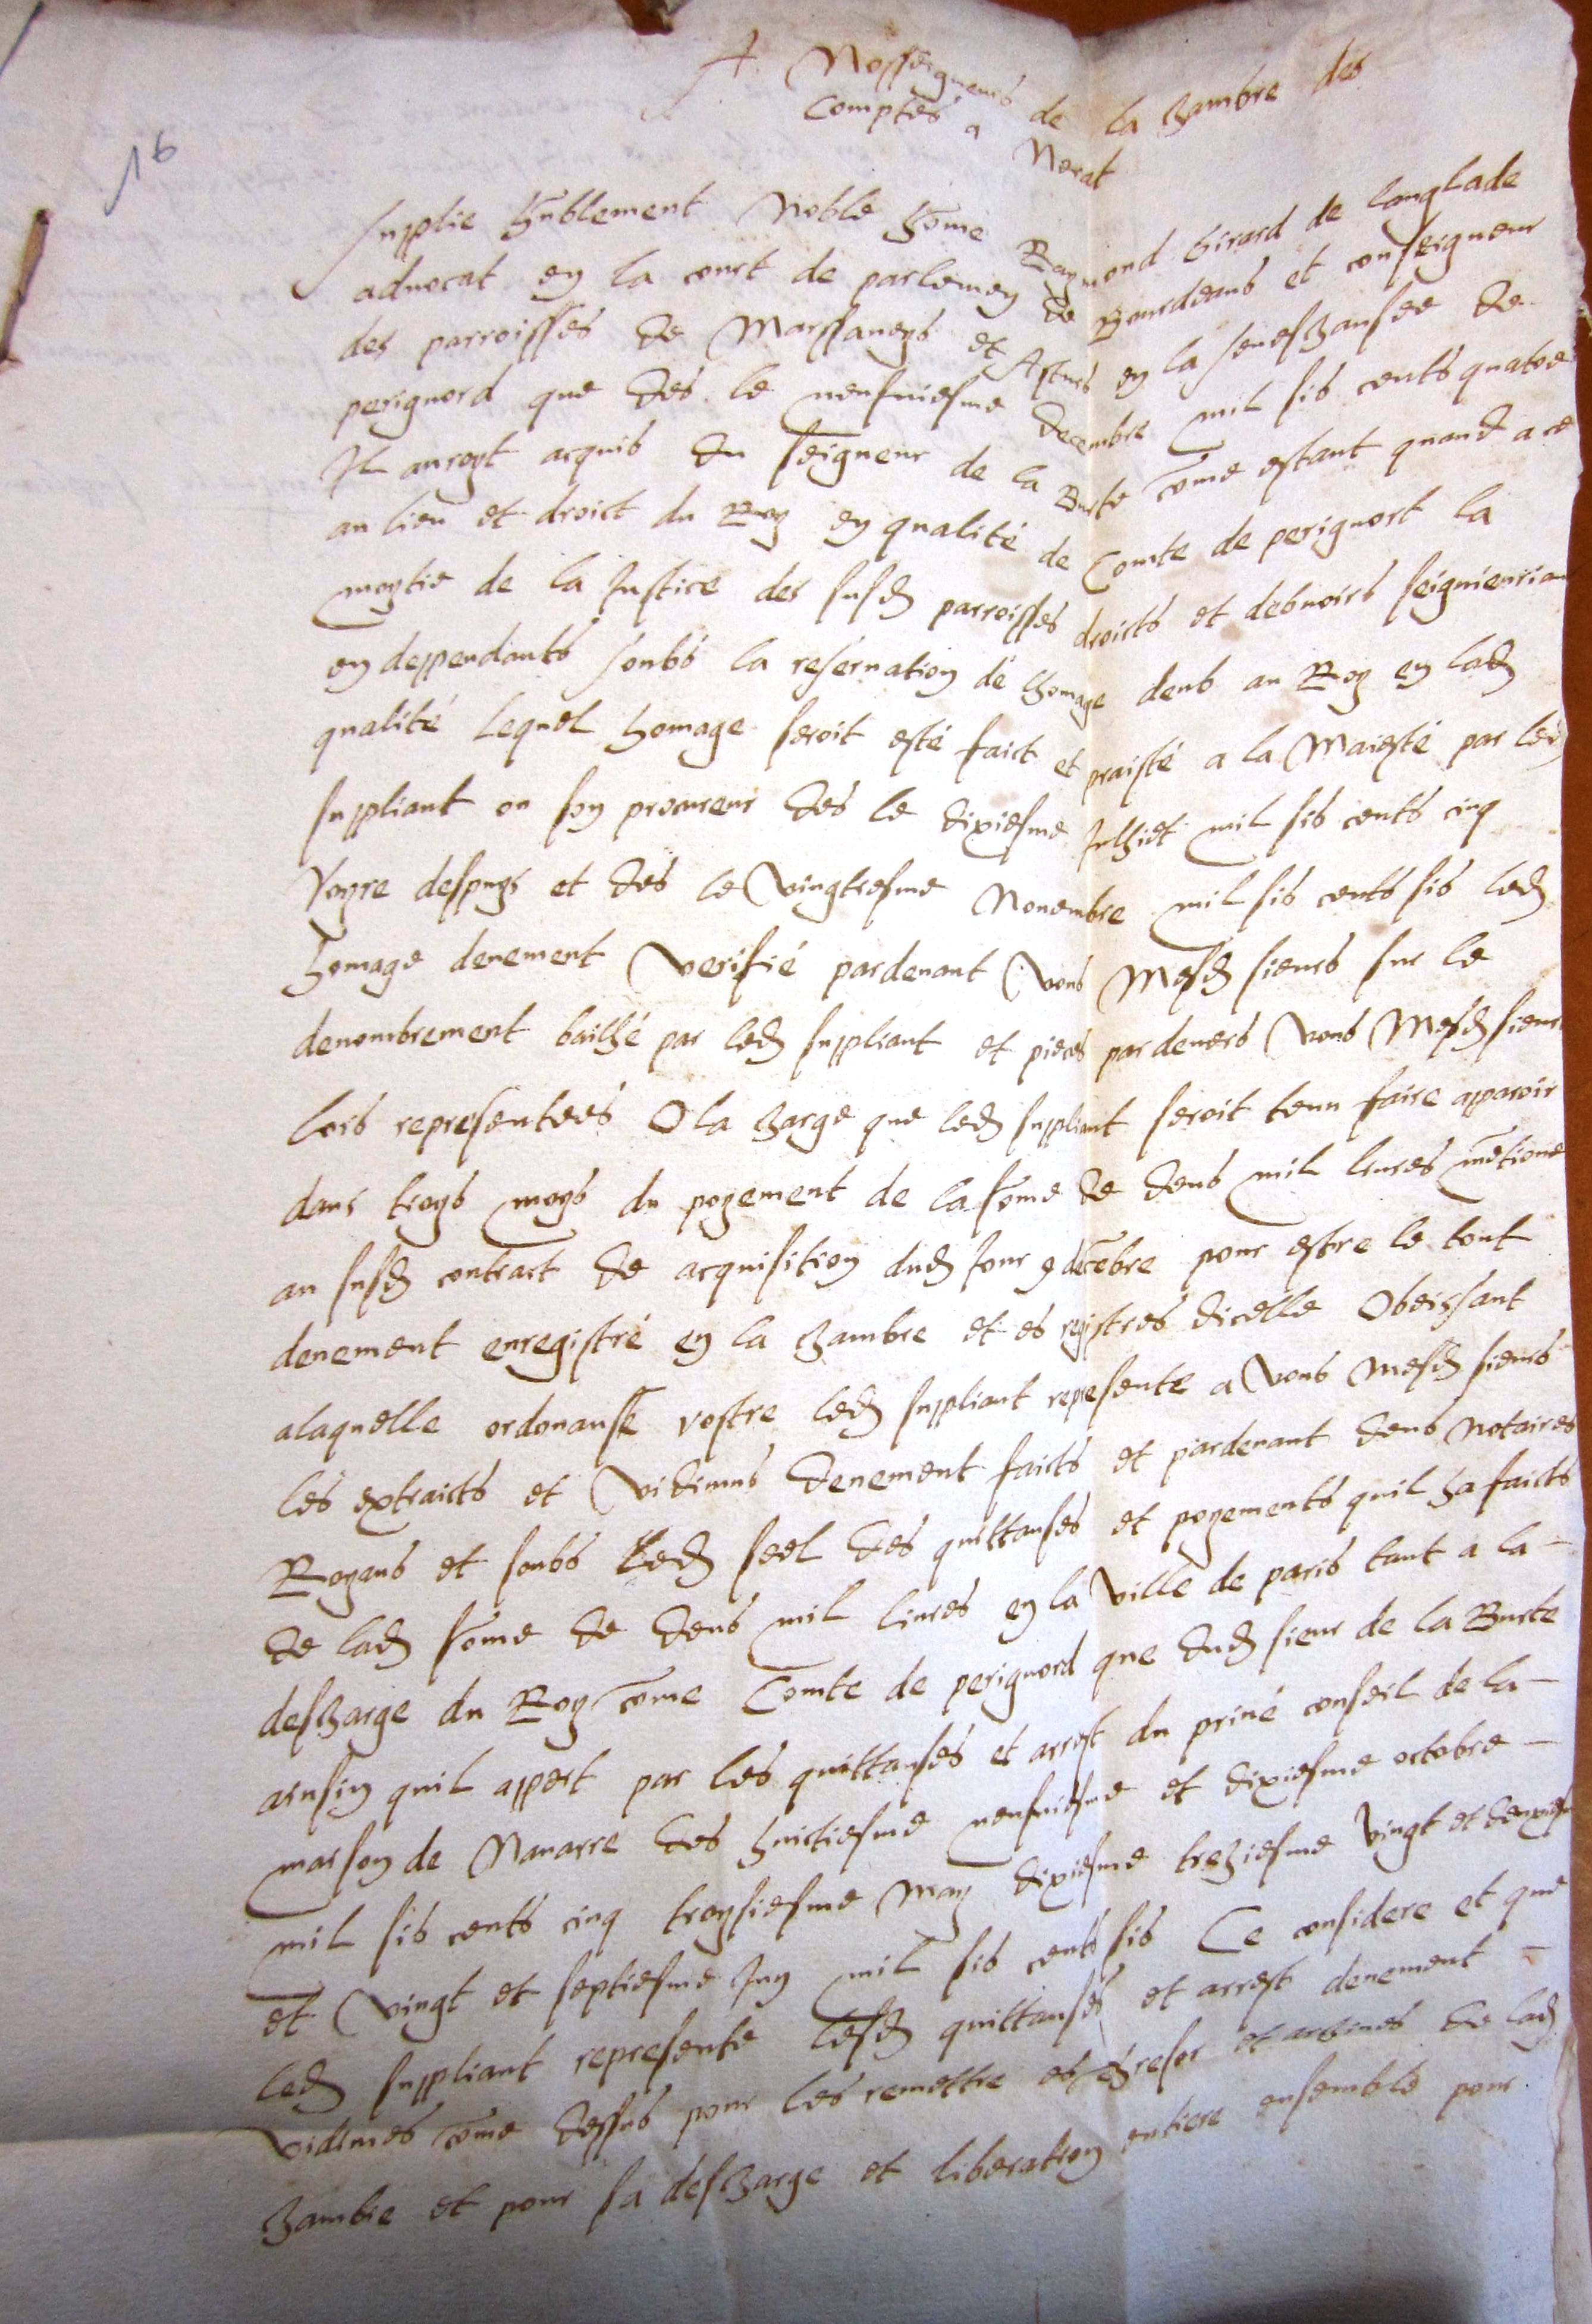 16
A Nosseigneurs de la chambre des
Comptes a Nerat
Suplie humblement Noble home Raymond Girard de langlade
advocat en la court de parlemen de Bourdeaus et conseigneur
des parroisses de Marssaneys et Asturs en la seneschaussee de
perignord que des le neufuiesme decembre mil sis cents quatre
Il auroyt acquis du seigneur de la Burte come estant quand a ce
au lieu et droict du Roy en qualité de Comte de perignort la
moytie de la Justice des susd parroisses droicts et debuoirs seignieuriau
en deppendants soubs la reseruation de homage deub au Roy en lad
qualité Lequel homage seroit esté faict et praisté a la Maiesté par led
suppliant ou son procureur des le dixiesme Julhiet mil sis cents cinq
Voyre despuys et des le Vingtiesme Nouembre mil sis cents sis led
homage deuement verifié pardeuant vous Mesd sieurs sur le
denombrement bailhé par led suppliant et pieces pardeuers vous Mesd sieurs
lors representees O la charge que led suppliant seroit tenu faire apparoir
dans troys moys du poyement de la some de deus mil liures metione
au susd contract de acquisition dud Jour 9 decebre pour estre le tout
deuement enregistré en la chambre et es registres dicelle Obeissant
alaquelle ordonansse vostre led suppliant represente a vous mesd sieurs
les extraicts et vidimus deuement faicts et pardeuant deus notaires
Royaus et soubs led seel des quittanses et poyements quil ha faicts
de lad some de deus mil liures en la ville de paris tant a la
descharge du Roy come Comte de perignord que dud sieur de la Burte
ainsin quil appert par les quittanses et arrest du priué conseil de la
maison de Nauarre des huictiesme neufuiesme et dixiesme octobre
mil sis cents cinq troysiesme may dixiesme treziesme vingt et deuxiesm
et vingt et septiesme Juy mil sis cents sis Ce considere et que
led suppliant represente lesd quittanses et arrest deuement
vidimes come dessus pour les remettre es thresor et archiues de lad
chambre et pour sa descharge et liberation entiere ensemble pour